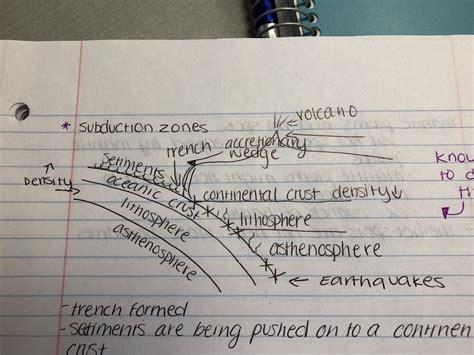 * Subduction zones
← volcano
trench accretionary
wedge
Setiments
↑
Density
→
oceanic crust
continental crust density↓
lithosphere
lithosphere
asthenosphere
asthenosphere
← Earthquakes
Know
to d
- trench formed
- Setiments are being pushed on to a continen
crst